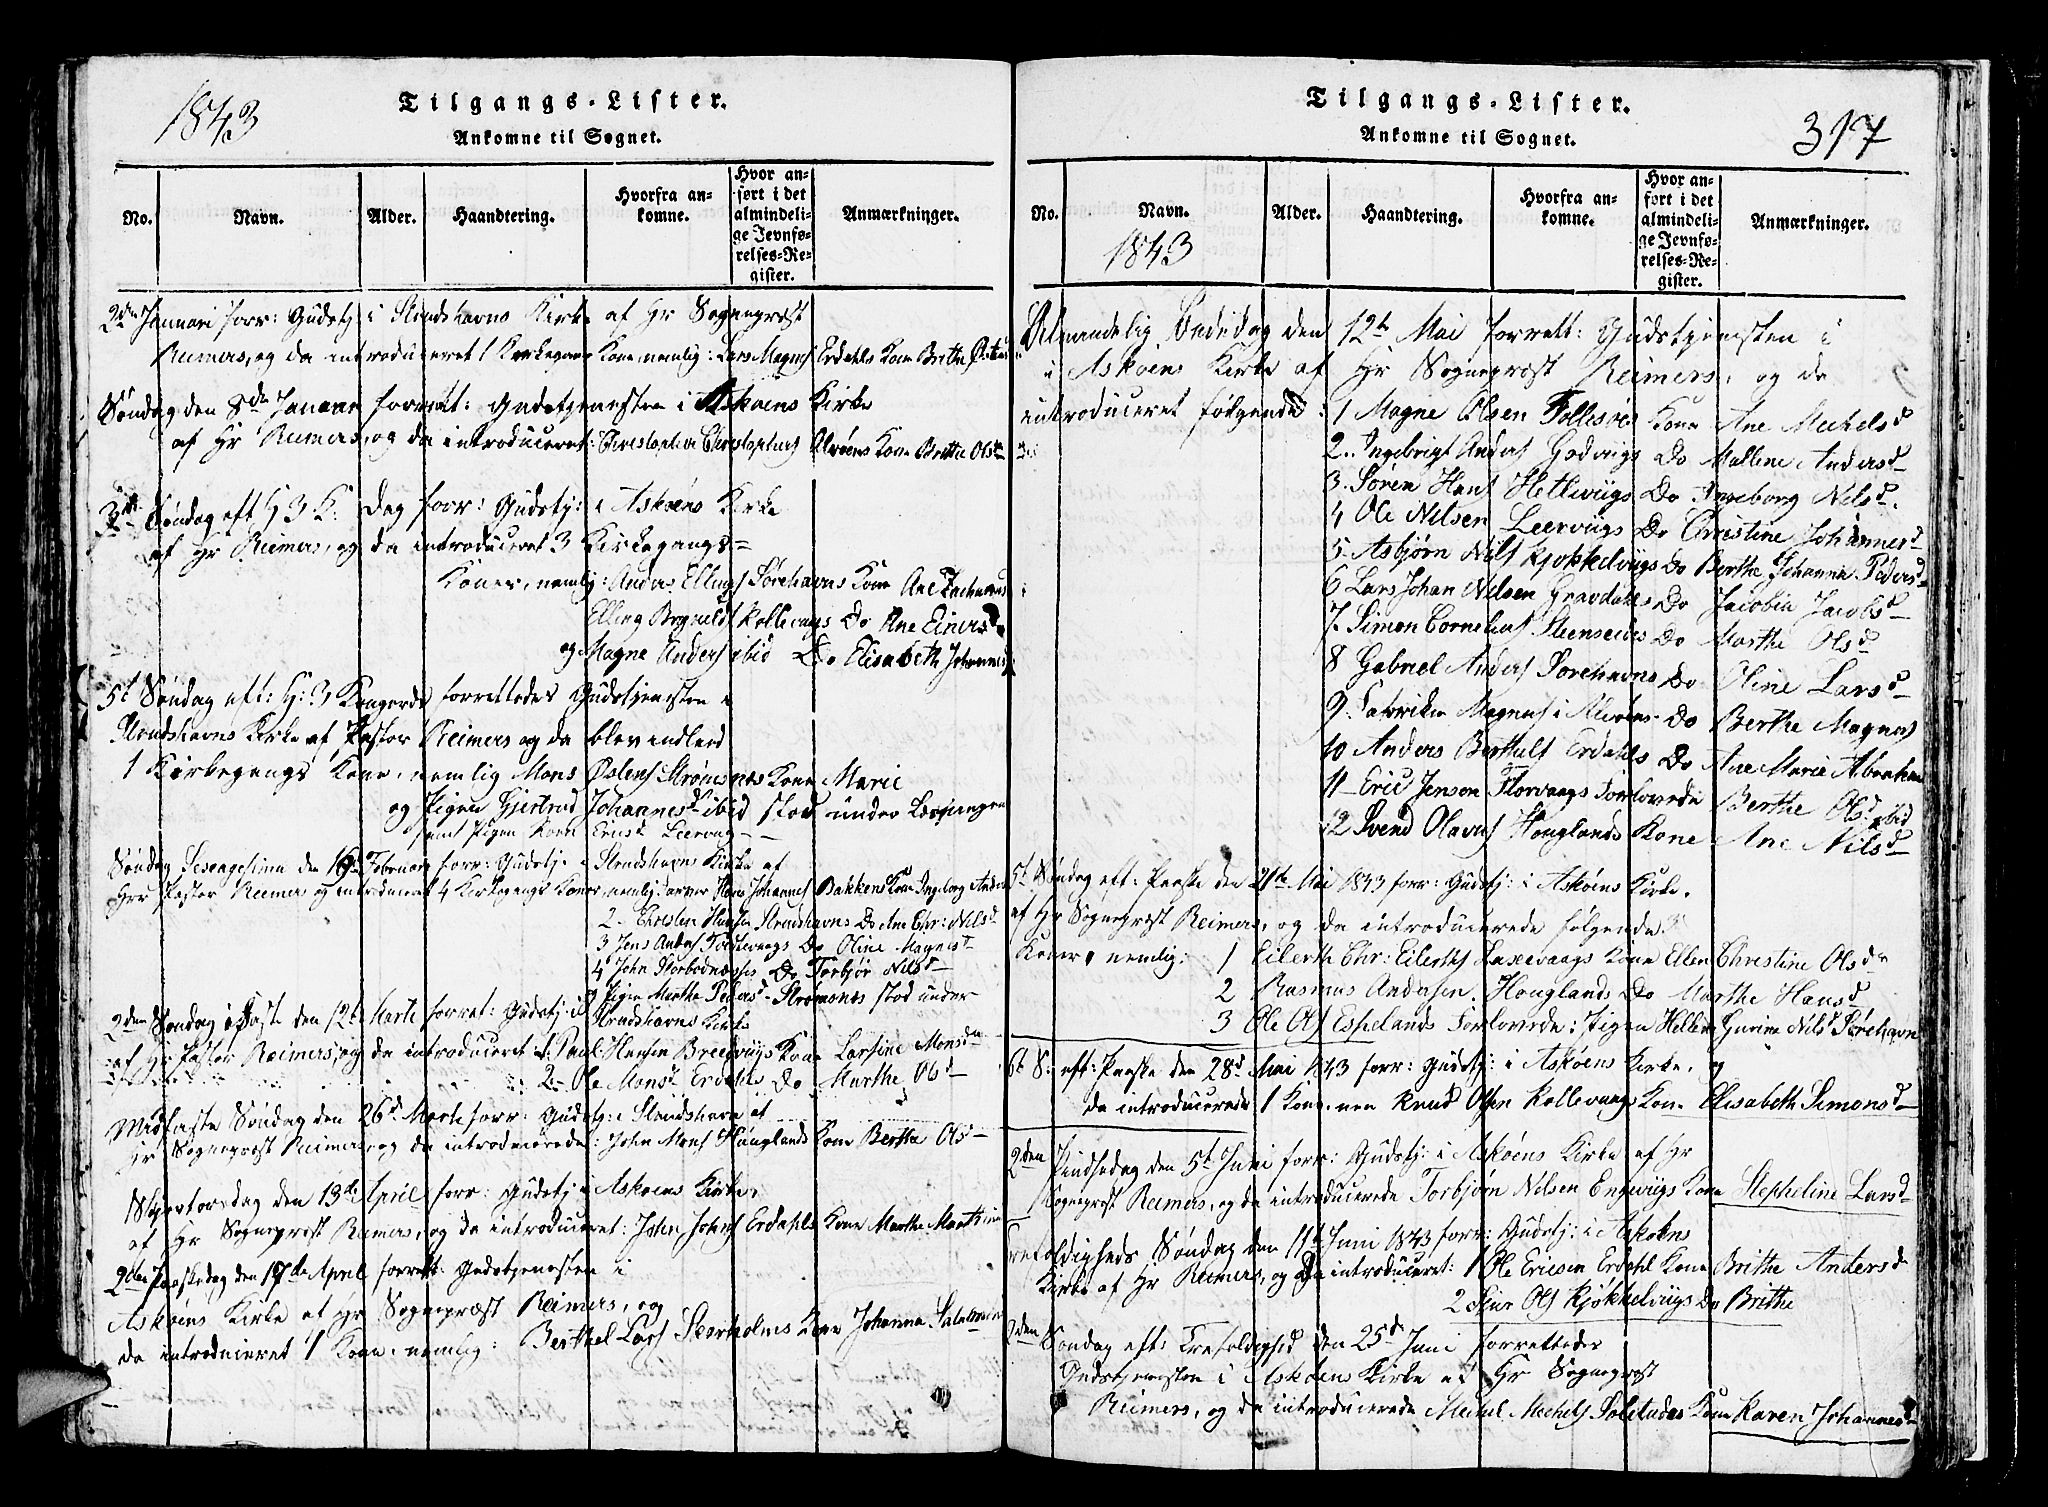 1843
Tilgangs-Lister.
Ankomne til Sognet.
No.
Navn.
Alder.
Haandtering.
Hvorfra ankomne.
Hvor anført i det almindelige Jevnførelses-Register.
Anmærkninger.
2den Januari forr: Gudstj i Strudshavns Kirke af Hr Sognepræst
Reimers, og da introduceret 1 Kirkegangs Kone, nemlig: Lars Magns Erdahls Kone Brithe
Søndag den 8de Januar forrett: Gudstjenesten i Askøens Kirke
af Hr Reimers, og da introduceret: Christopher Christophers Alvøens Kone Brithe Olsdr
3die Søndag eft H 3 K: Dag forr: Gudstj: i Askøens Kirke
af Hr Reimers, og da introduceret 3 Kirkegangs=
Koner, nemlig: Anders Ellings Sørehavns Kone Ane
Elling Brynilds Kollevaags Do Ane Einersd
og Magne Anders ibid Do Elisabeth Johannes
5t Søndag eft: H: 3 Kongers forrettedes Gudstjenesten i
Strudshavns Kirke af Pastor Reimers og da blev indled
1 Kirkegangs Kone, nemlig Mons Østens Strømsnes Kone Marie
og Pigen Gjertrud Johannesd ibid stod under
samt Pigen Leervaag
Søndag Sexagesima den Februar forr: Gudstj. i Strudshavns Kirke af
Hr Pastor Reimers og introduceret 4 Kirkegangs Koner, nemlig: Johannes Bakkens Kone Ingeborg Anders
2 Christen Hansen Strudshavns Do Ane Chr: Nilsd
3 Jens Anders Do Oline Magnesd
4 John Do Torbjør Nilsd
Pigen Marthe Pedersd Strømsnes stod under
2den Søndag i Faste den 12te Marts forret: Gudstj: i Strudshavns Kirke
af Hr Pastor Reimers, og da introduceret 1. Paul Hansen Breedviigs Kone Larsine Monsdr
2 Ole Mons Erdahls Do Marthe Olsd
Midfaste Søndag den 26d Marts forr: Gudstj: i Strudshavn af
Hr Sognepræst Reimers, og da introducerede: John Mons Houglands Kone Berthe Olsd
Skjertorsdag den 13de April forr: Gudstj i Askøens Kirke,
af Hr Sognepræst Reimers, og da introduceret: John Johns Erdahls Kone Marthe
2den Paaskedag den 17de April forrett: Gudstjenesten i
Askøens Kirke af Hr Sognepræst Reimers, og
da introduceret 1 Kone, nemlig: Berthel Lars Skorholms Kone Johanna
Tilgangs-Lister.
Ankomne til Sognet.
317
No.
Navn.
Alder.
Haandtering.
Hvorfra ankomne.
Hvor anført i det almindelige Jevnførelses-Register.
Anmærkninger.
1843
Almindelig Bededag den 12te Mai forrett: Gudstjenesten i
i Askøens Kirke af Hr Sognepræst Reimers, og da
introduceret følgende: 1 Magne Olsen Follesøes Kone Ane Michelsd
2. Ingebrigt Anders Godviigs Do Mallene Andersd
3. Søren Hans Hetleviigs Do Ingeborg Nilsd.
4 Ole Nilsen Leerviigs Do Christine Johannesd
5 Asbjørn Nils Kjøkkelviigs Do Berthe Johanne Pedersd
6 Lars Johan Nilsen Gravdahls Do Jacobia Jacobsd
7. Simon Cornelius Steensedes Do Marthe Olsd
8 Gabriel Anders Sørehavns Do Oline Larsd
9. Fabrikør Magnus i Alvøens Do Berthe Magnes
10 Anders Berthels Erdahls Do Ane Marie Abraham
11 Eric Jensen Florvaags Forlovede Berthe Olsd ibid
12 Svend Olavus Houglands Kone Ane Nilsd
5t Søndag eft: Paaske den 21de Mai 1843 forr: Gudstj: i Askøens Kirke.
af Hr Sognepræst Reimers, og da introducerede følgende 3
Koner, nemlig: 1 Eilerth Chr: Eilerths Laxevaags Kone Ellen Christine Olsdr
2 Rasmus Andersen Houglands Do Marthe Hansd
3 Ole Ols Espelands Forlovede: Pigen Hellene Gurine Nilsd Sørehavn
6t S: eft: Paaske den 28d Mai 1843 forr: Gudstj: i Askøens Kirke, og
da introducerede 1 Kone, nem Knud Olsen Kollevaags Kone Elisabeth Simonsd
2den Pindsedag den 5t Juni forr: Gudstj: i Askøens Kirke af Hr
Sognepræst Reimers, og da introducerede Torbjørn Nilsen Engviigs Kone Stepheline Larsd
Trefoldigheds Søndag den 11te Juni 1843 forr: Gudstj: i Askøens
Kirke af Hr Reimers, og da introduceret: 1 Ole Ericsen Erdahl Kone Brithe Andersd
2 Siur Ols Kjøkkelviigs Do Brithe
2den Søndag eft: Trefoldighed den 25d Juni forrettedes
Gudstjenesten i Askøens Kirke af Hr Sognepræst
Reimers, og da introducerede Michel Michels Solstades Kone Karen Johannesd